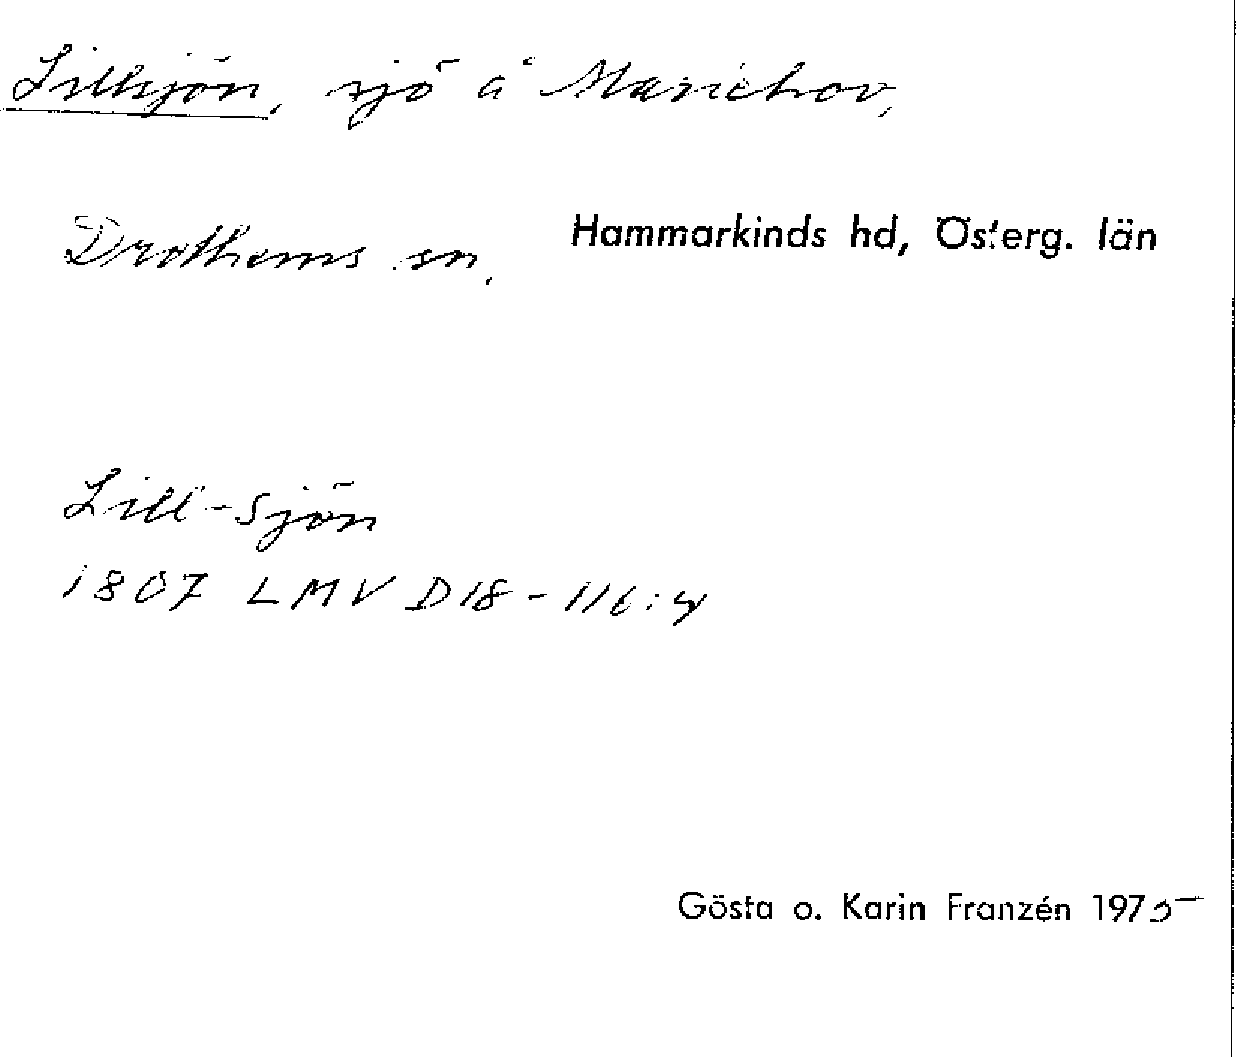 Lillsjön, sjö å Mariehov,
Drothems sn, Hammarkinds hd, Österg. län
Lill-Sjön
1807 LMV D18-116:4
Gösta o. Karin Franzén 1975